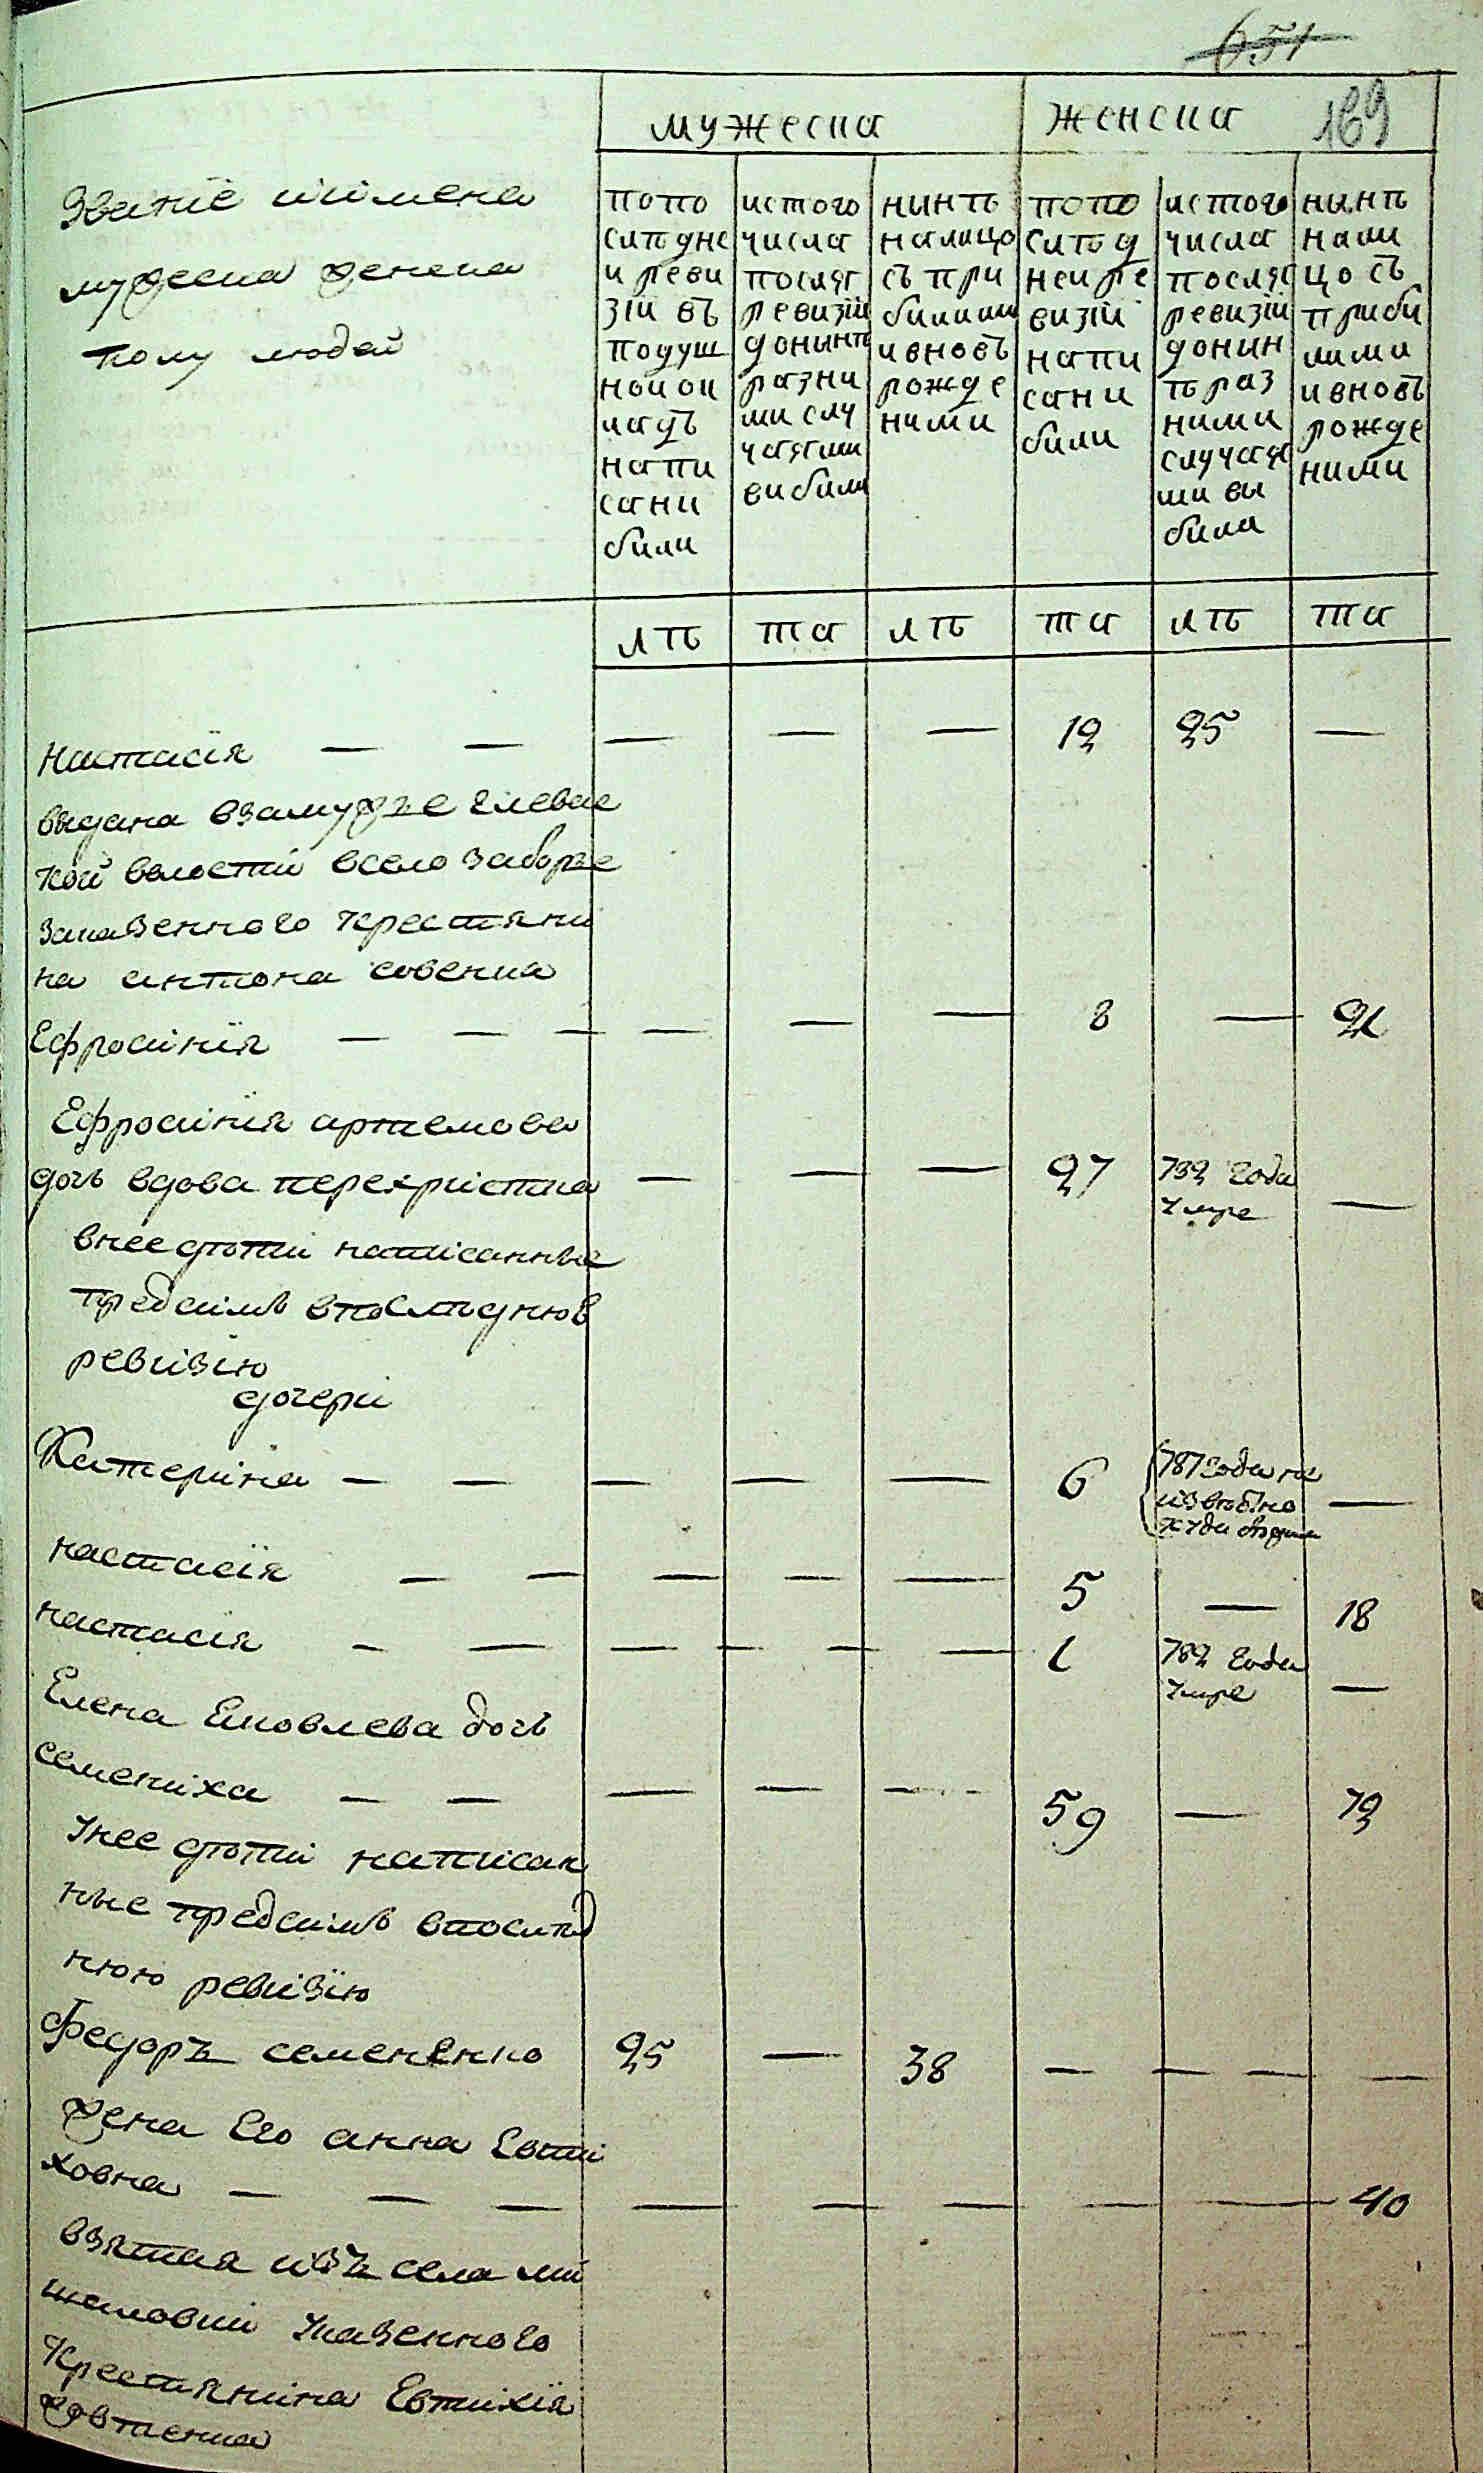 651
мужеска
женска
169
Званіе иимена
мужеска женска
полу людей
попо
слѣдне
и реви
зіи въ
подуш
ной ок
ладъ
напи
сани
били
истого
числа
посляг
ревизіи
донынѣ
разни
ми слу
чаягми
вибили
нынѣ
налицо
съ при
билими
ивновъ
рожде
ними
попо
слѣд
неи ре
визіи
напи
сани
били
истого
числа
посляг
ревизіи
донин
ѣ раз
ними
случая
ми вы
била
нынѣ
нали
цо съ
приби
лими
ивновъ
рожде
ними
лѣ
та
лѣ
та
лѣ
та
Настасія — — — — — 12 25 —
выдана взамужъе
кой волости всело Заборъе
казенного крестяни
на антона совенка
Ефросинія — — — — — — 8 — 21
Ефросинія артемова
дочъ вдова перехристка — — — 27 792 года
умре —
внее дѣти написанные
предсимъ впослѣднюю
ревизію
дочери
Катерина — — — — — 6 787 года не
извѣстно
куда —
настасія — — — — — 5 — 18
настасія — — — — — 1 782 года
умре —
Елена Яковлева дочъ
семениха — — — — — 59 — 72
Унее дѣти написан
ные предсимъ впослѣд
нюю ревизію
Федоръ семененко 25 — 38 — — — —
жена Его анна Евти
ховна — — — — — — — — 40
взятая изъ села ми
шаловки казенного
Крестянина Евтихія